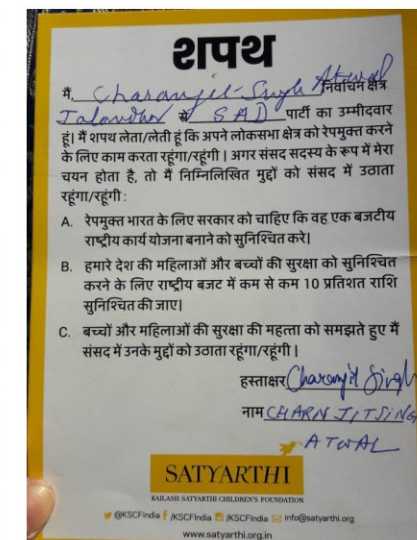 शपथ
मैं, Charanjit Singh Atwal निर्वाचन क्षेत्र
Jalandhar से SAD पार्टी का उम्मीदवार
हूं। मैं शपथ लेता/लेती हूं कि अपने लोकसभा क्षेत्र को रेपमुक्त करने
के लिए काम करता रहूंगा/रहूंगी। अगर संसद सदस्य के रूप में मेरा
चयन होता है, तो मैं निम्निलिखित मुद्दों को संसद में उठाता
रहूंगा/रहूंगी:
A. रेपमुक्त भारत के लिए सरकार को चाहिए कि वह एक बजटीय
राष्ट्रीय कार्य योजना बनाने को सुनिश्चित करे।
B. हमारे देश की महिलाओं और बच्चों की सुरक्षा को सुनिश्चित
करने के लिए राष्ट्रीय बजट में कम से कम 10 प्रतिशत राशि
सुनिश्चित की जाए।
C. बच्चों और महिलाओं की सुरक्षा की महत्ता को समझते हुए मैं
संसद में उनके मुद्दों को उठाता रहूंगा/रहूंगी।
हस्ताक्षर Charanjit Singh
नाम CHARNJITSING
ATWAL
SATYARTHI
KAILASH SATYARTHI CHILDREN'S FOUNDATION
@KSCFIndia /KSCFIndia /KSCFIndia info@satyarthi.org
www.satyarthi.org.in